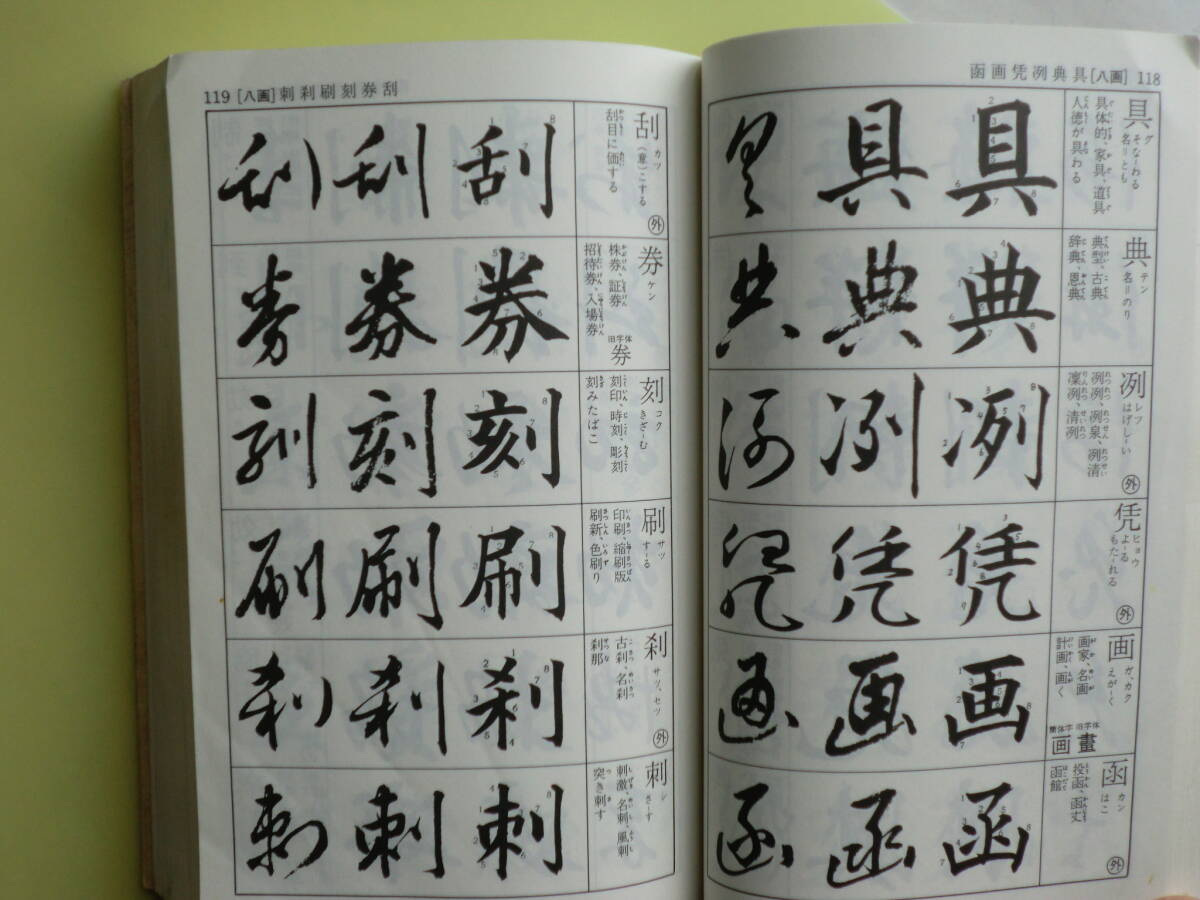 函画凭冽典具[八画] 118
具
グ
そなーわる
名=とも
具体的、家具、道具
人徳が具わる
典
テン
名=のり
典型、古典
辞典、恩典
冽
レツ
はげしーい
冽冽、冽泉、冽清
凜冽、清冽
外
凭
ヒョウ
よーる
もたーれる
外
画
ガ、カク
えがーく
画家、名画
計画、画く
旧字体
畫
簡体字
画
函
カン
はこ
投函、函丈
函館
外
具具具
典典典
冽冽冽
凭凭凭
画画画
函函函
119 [八画] 刺刹刷刻券刮
刮
カツ
(意)こする
刮目に価する
外
券
ケン
株券、証券
招待券、入場券
旧字体
券
刻
コク
きざーむ
刻印、時刻、彫刻
刻みたばこ
刷
サツ
すーる
印刷、縮刷版
刷新、色刷り
刹
サツ、セツ
古刹、名刹
刹那
外
刺
シ
さーす
刺激、名刺、風刺
突き刺す
刮刮刮
券券券
刻刻刻
刷刷刷
刹刹刹
刺刺刺